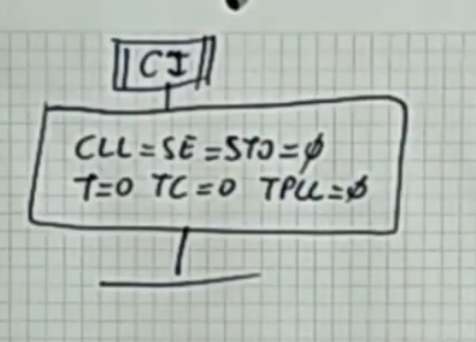 CI
CLL = SE = STO = ø
T=0 TC=0 TPLL=ø